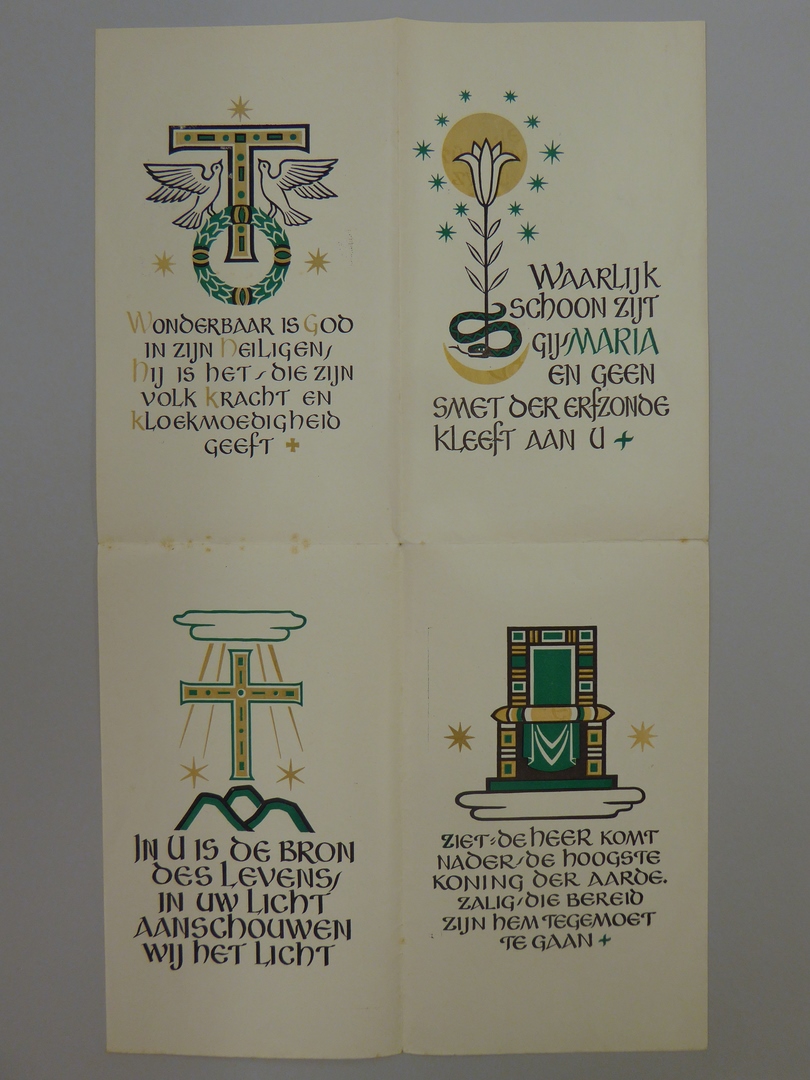 Wonderbaar is God
in zijn heiligen/
hij is het/die zijn
volk kracht en
kloekmoedigheid
geeft +
Waarlijk
schoon zijt
gij/MARIA
en geen
smet der erfzonde
kleeft aan u +
In u is de bron
des levens/
in uw licht
aanschouwen
wij het licht
Ziet:de heer komt
nader/de hoogste
koning der aarde.
zalig/die bereid
zijn hem tegemoet
te gaan +